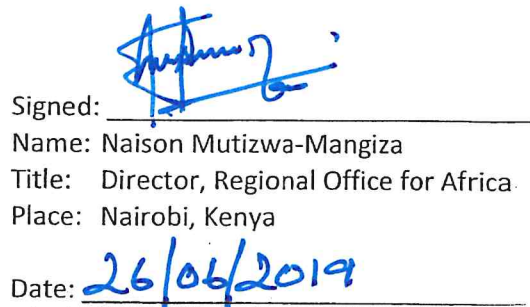 Signed:
Name: Naison Mutizwa-Mangiza
Title: Director, Regional Office for Africa
Place: Nairobi, Kenya
Date: 26/06/2019